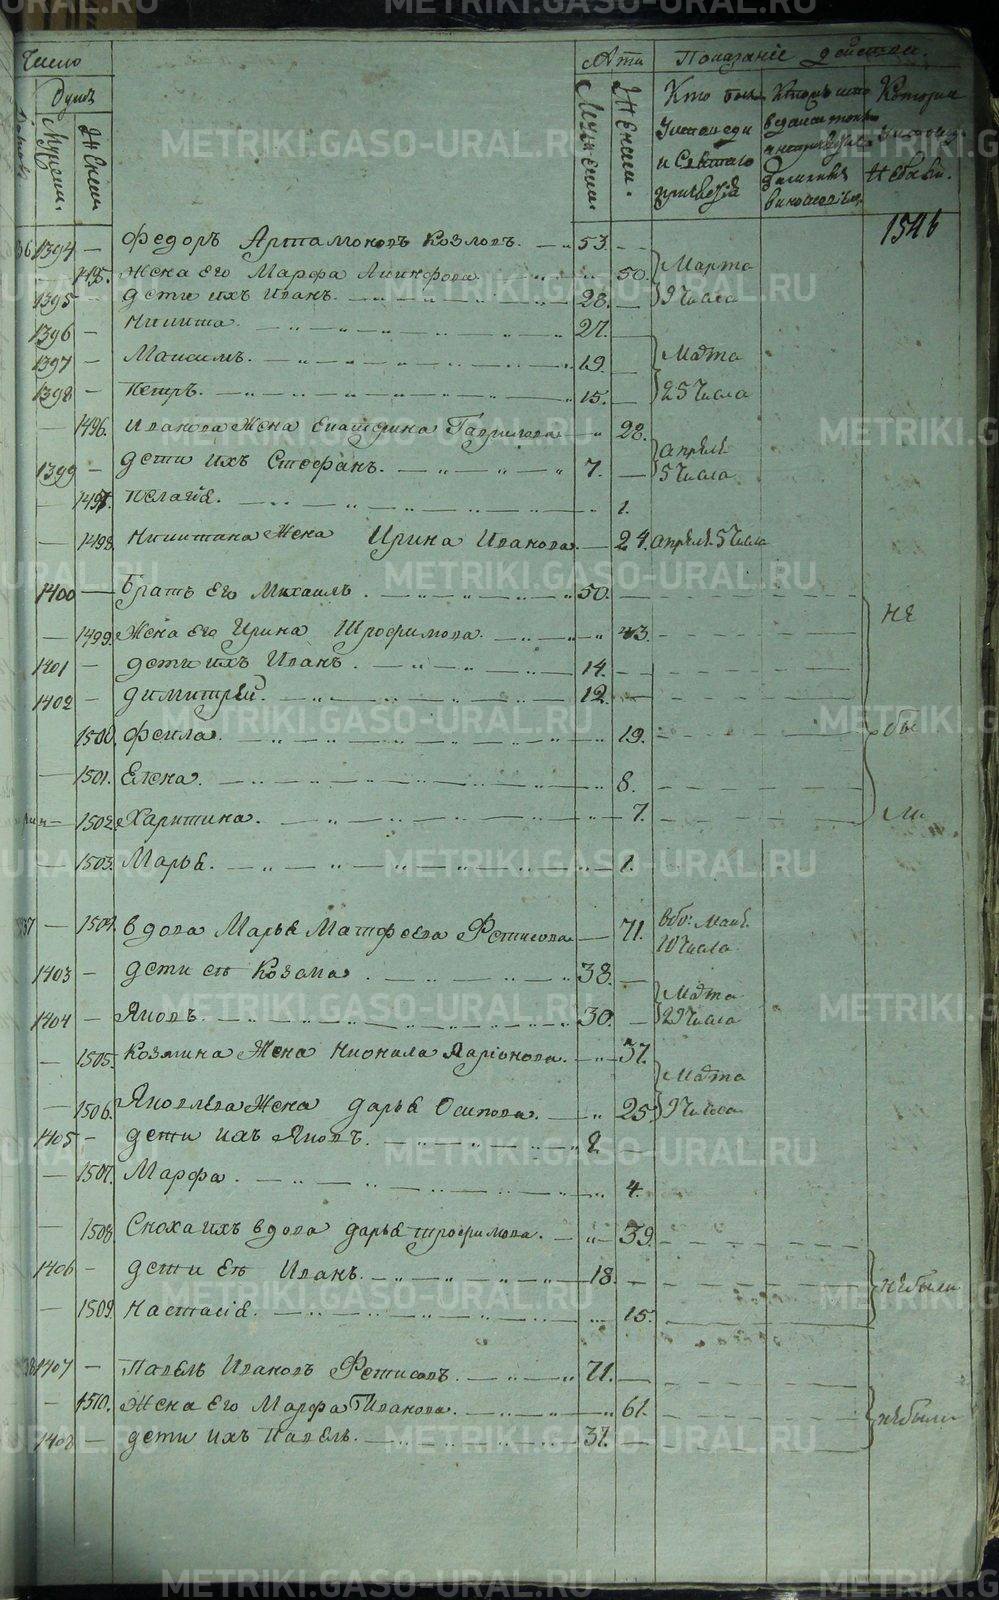 Число
Лѣта Показаніе дѣйствія.
Душъ
Мужеск. Женск.
Мужески. Женски.
Кто былъ у исповеди и Святаго причастія
Которыи Не были.
1546
1394 — Федоръ Артамоновъ Козловъ. 53.
1495. Жена Его Марфа 50. Марта
1395 — дети ихъ Иванъ. 28. 9 Числа
1396 — Никита. 27.
1397 — Максимъ. 19. Марта
1398 — Петръ. 15. 25 Числа
— 1496. Иванова Жена Екатерина Гаврилова 28.
1399 — дети ихъ Стефанъ. 7. апреля 5 Числа
— 1497. Пелагія. 1.
— 1498. Никитина Жена Ирина Иванова 24. апреля. 5 Числа
1400 — Братъ Его Михаилъ. 50.
— 1499. Жена Его Ирина Трофимова. 43. не
1401 — дети ихъ Иванъ. 14.
1402 — Димитрей. 12.
1500. Фекла. 19. бы
1501. Елена. 8.
1502. Харитина. 7. ли
1503. Марья. 1.
37 — 1504. вдова Марья Матфеева Фетисова 71. 10 Числа
1403 — дети ея Козма 38. Марта
1404 — Яковъ. 30. 2 Числа
— 1505. Козмина Жена Неонила Ларіонова. 37. Марта
— 1506. Яковлева Жена дарья Осипова. 25. 9 Числа
1405 — дети ихъ Яковъ. 2
— 1507. Марфа. 4.
— 1508. Сноха ихъ вдова дарья трофимова. 39.
1406 — дети Ея Иванъ. 18. не были
— 1509. Настасія. 15.
38 1407 — Павелъ Ивановъ Фетисовъ. 71.
— 1510. Жена Его Марфа Иванова. 61. не были
1408 — дети ихъ Павелъ. 37.
METRIKI.GASO-URAL.RU